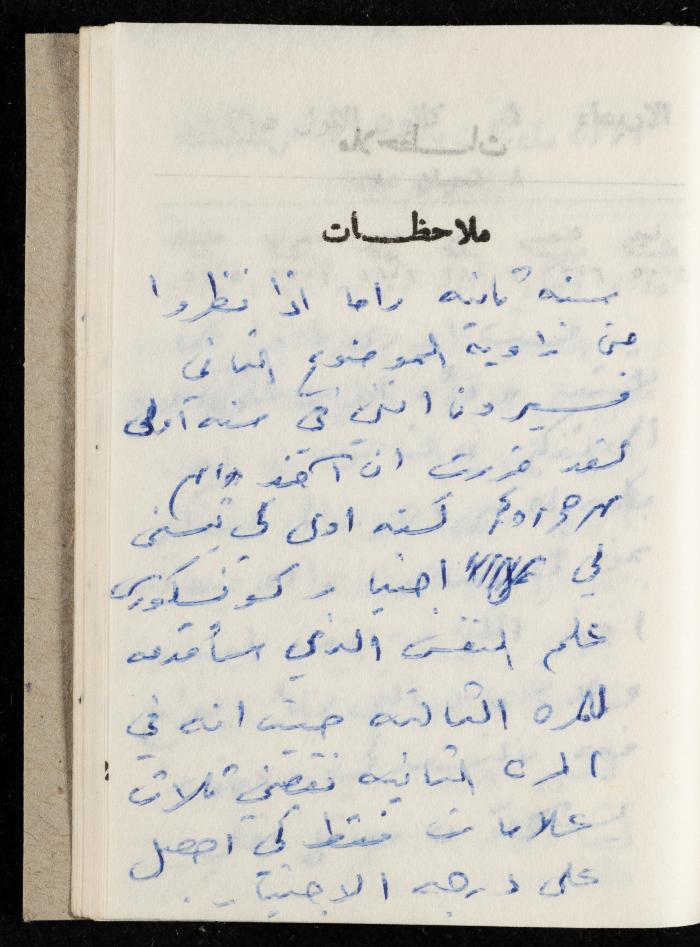 ملاحظات
سنه ثانيه واما اذا نظروا
من زاوية الموضوع الثاني
فسيرون انني في سنه اولى
لقد قررت ان آخذ
كسنه اولى لكي يتسنى
لي اجتياز كونكورس
علم النفس الذي سأقدمه
للمره الثالثه حيث انه في
المره الثانيه نقصني ثلاث
علامات فقط لكي احصل
على درجه الاجتياز.